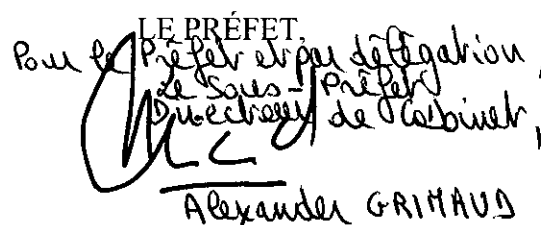 LE PRÉFET,
Pour le Préfet et par délégation,
Le Sous-Préfet
Directeur de Cabinet,
Alexander GRIMAUD